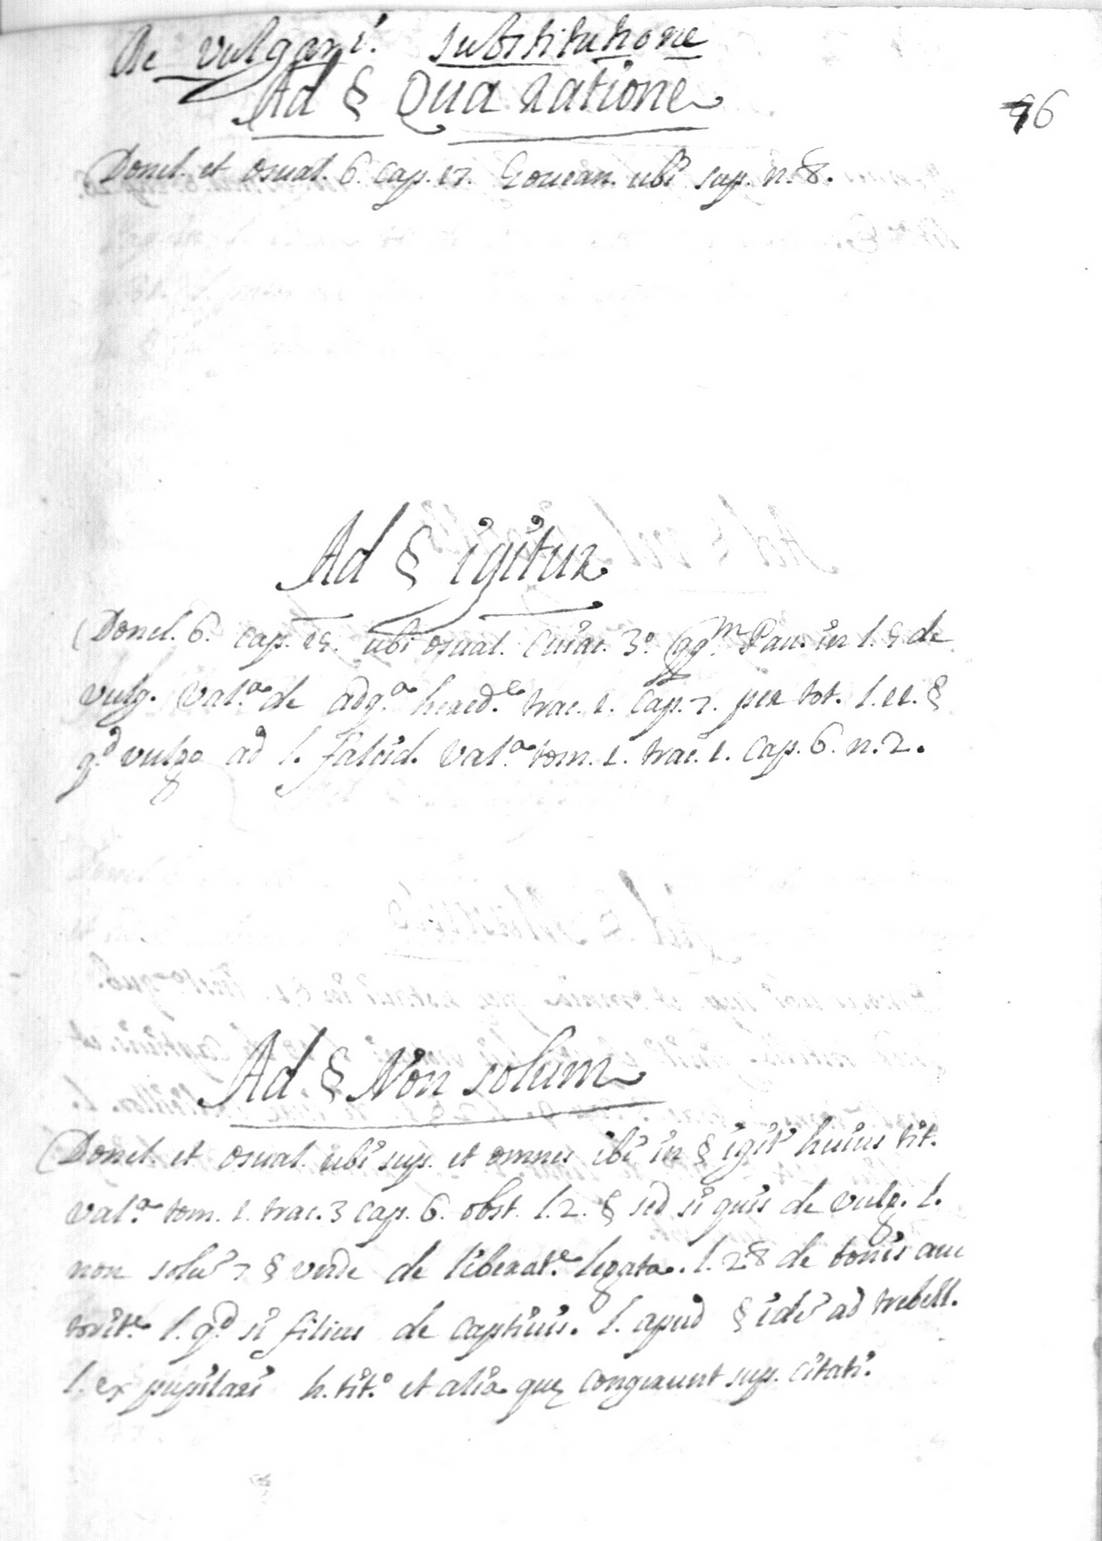 de vulgari substitutione
Ad § Qua ratione
96
Donel. et osual. 6. cap. 27. Gouean. ubi sup. n. 8.
Ad § igitur
Donel. 6. cap. 25. ubi osual. Cuiac. 3º qq.m Pau. in l. 5 de
vulg. Val.a de adq.a hered.e trac. 1. cap. 2. per tot. l. 11. §
q.d vulgo ad l. falcid. Val.a tom. 1. trac. 1. cap. 6. n. 2.
Ad § Non solum
Donel. et osual. ubi sup. et omnes ibi in § igit huius tit.
Val.a tom. 1. trac. 3 cap. 6. obst. l. 2. § sed si quis de vulg. l.
non solu 7 § de liberat.e legata. l. 28 de bonis auc
torit.e l. q.d si filius de captiuis. l. apud § ide ad trebell.
l. ex pupilari h. tit.º et alia quę congerunt sup. citati.